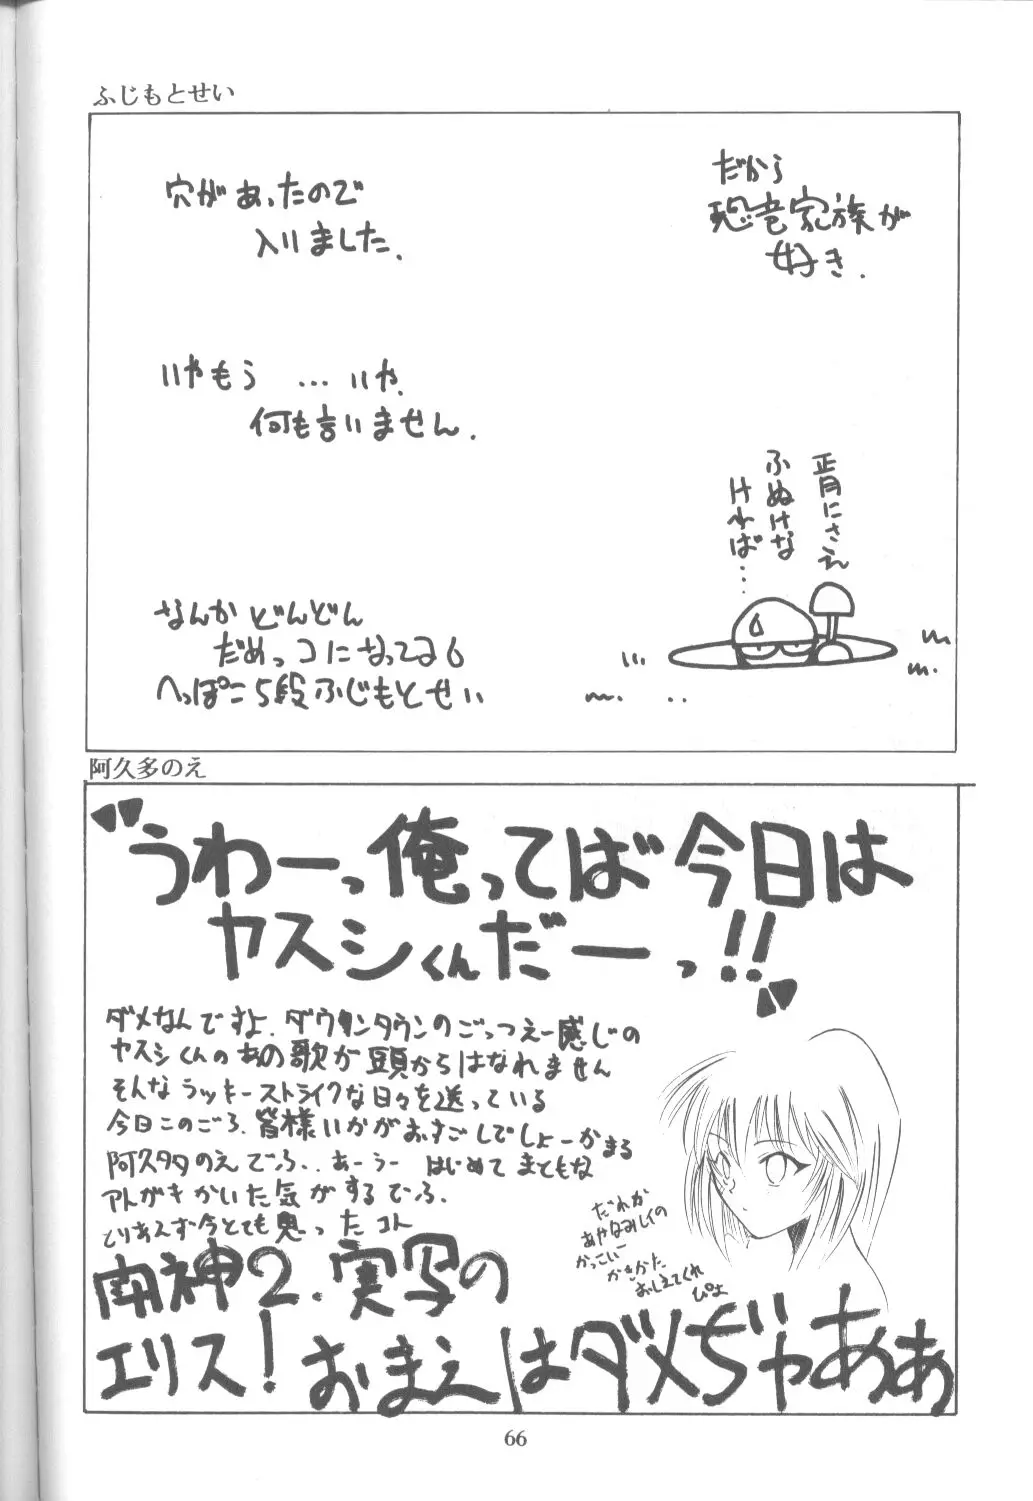 ふじもとせい
だから
恐竜家族が
好き.
穴があったので
入りました.
いやもう …いや.
何も言いません.
正月にさえ
ふぬけな
ければ…
なんかどんどん
だめっコになってる
へっぽこ5段ふじもとせい
阿久多のえ
"うわーっ俺ってば今日は
ヤスシくんだーっ!!"
ダメなんですよ.ダウンタウンのごっつえー感じの
ヤスシくんのあの歌が頭からはなれません
そんなラッキーストライクな日々を送っている
今日このごろ.皆様いかがおすごしでしょーかまる
阿久多のえでふ..あーうー はじめてまともな
アトガキかいた気がするでふ.
とりあえず今とても思ったコト
だれか
あやなみレイの
かっこいー
かきかた
おしえてくれ
ぴょ
南神2.実写の
エリス!おまえはダメぢゃああ
66